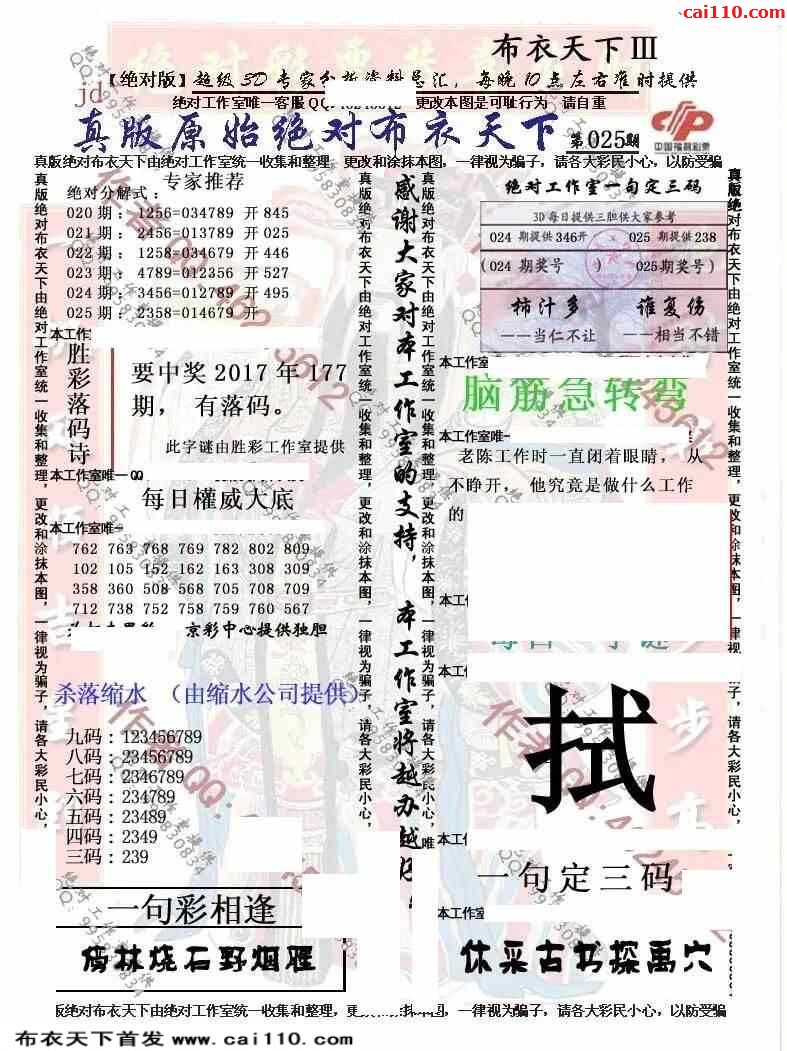 cai110.com
布衣天下III
【绝对版】超级3D专家分析资料总汇，每晚10点左右准时提供
jd
绝对工作室唯一客服QQ: 更改本图是可耻行为 请自重
真版原始绝对布衣天下 第025期
中国福利彩票
真版绝对布衣天下由绝对工作室统一收集和整理，更改和涂抹本图，一律视为骗子，请各大彩民小心，以防受骗
真版绝对布衣天下由绝对工作室统一收集和整理，更改和涂抹本图，一律视为骗子，请各大彩民小心，
专家推荐
绝对分解式：
020期：1256=034789 开845
021期：2456=013789 开025
022期：1258=034679 开446
023期：4789=012356 开527
024期：3456=012789 开495
025期：2358=014679 开
本工作
胜彩落码诗
要中奖2017年177
期，有落码。
此字谜由胜彩工作室提供
本工作室唯一QQ
每日權威大底
本工作室唯一
762 763 768 769 782 802 809
102 105 152 162 163 308 309
358 360 508 568 705 708 709
712 738 752 758 759 760 567
京彩中心提供独胆
杀落缩水 （由缩水公司提供）
九码：123456789
八码：23456789
七码：2346789
六码：234789
五码：23489
四码：2349
三码：239
一句彩相逢
樵林烧石野烟腥
真版绝对布衣天下由绝对工作室统一收集和整理，更改和涂抹本图，一律视为骗子，请各大彩民小心，
感谢大家对本工作室的支持，本工作室将越办越好。
真版绝对布衣天下由绝对工作室统一收集和整理，更改和涂抹本图，一律视为骗子，请各大彩民小心，唯
绝对工作室一句定三码
3D每日提供三胆供大家参考
024 期提供346开 025 期提供238
(024 期奖号 ) 025期奖号)
柿汁多 谁复伤
——当仁不让 ——相当不错
本工作室
脑筋急转弯
本工作室唯一
老陈工作时一直闭着眼睛，从
不睁开，他究竟是做什么工作
的
本工
本工
拭
本工作
一句定三码
本工作室
休采古书探禹穴
真版绝对布衣天下由绝对工作室统一收集和整理，更改和涂抹本图，一律视为骗子，请各大彩民小心，
版绝对布衣天下由绝对工作室统一收集和整理，更改和涂抹本图，一律视为骗子，请各大彩民小心，以防受骗
布衣天下首发 www.cai110.com